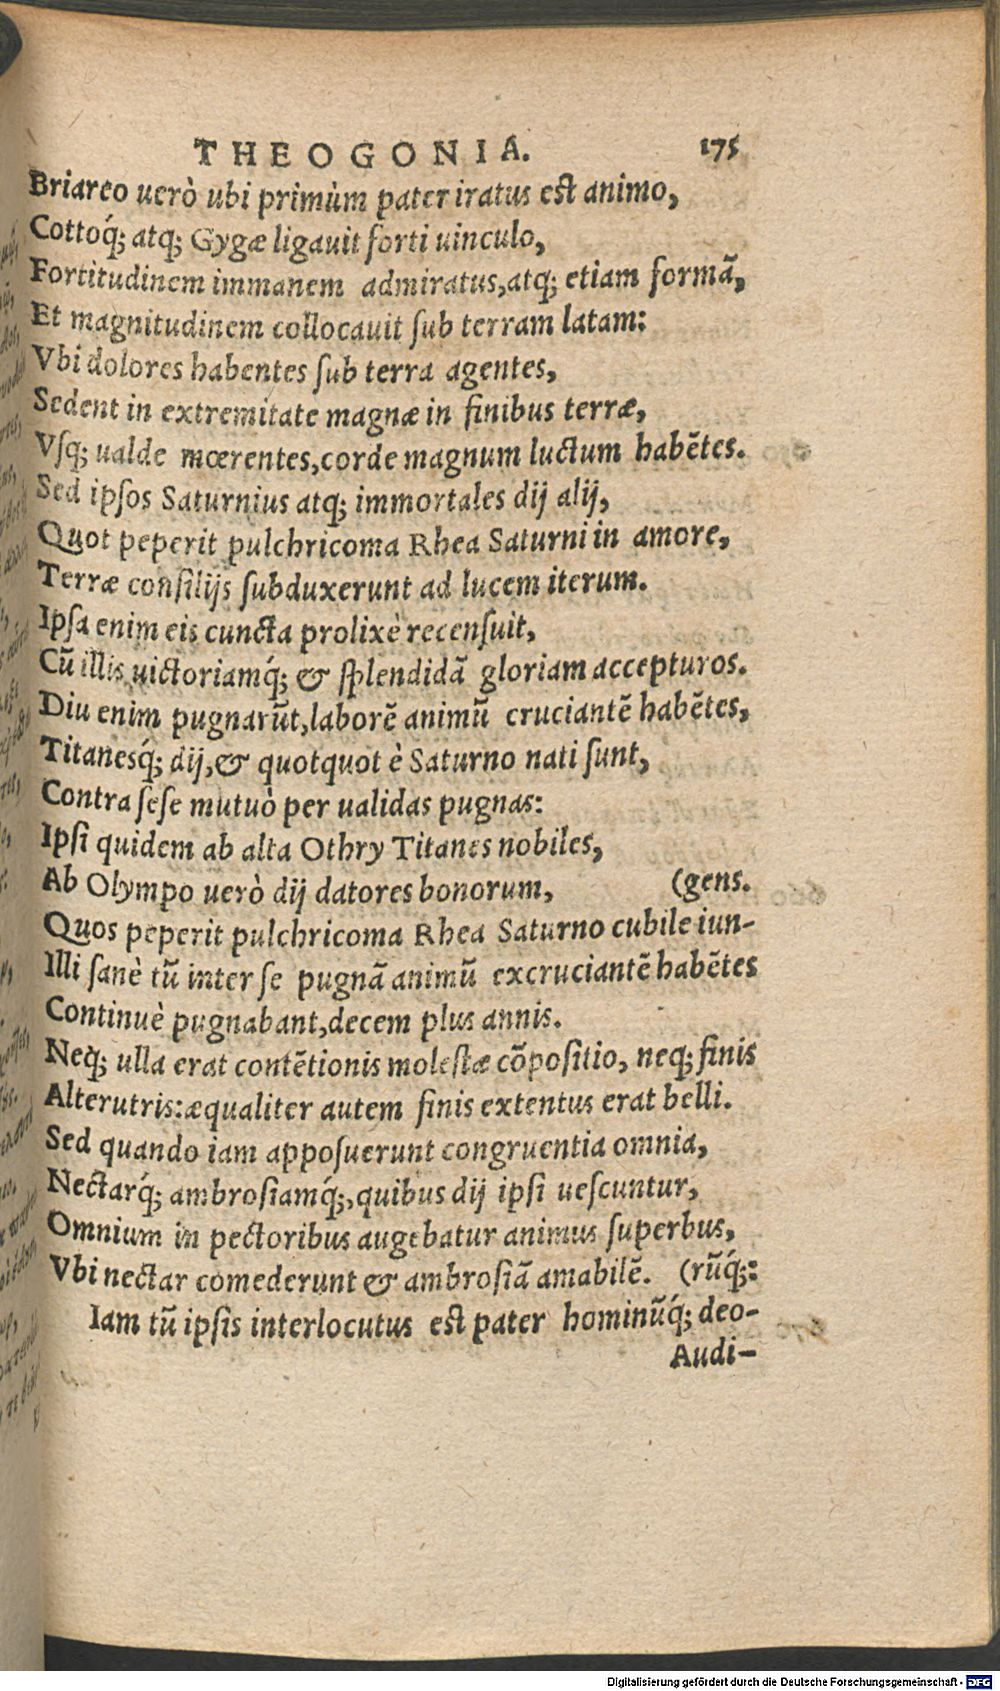 THEOGONIA. 175
Briareo uerò ubi primùm pater iratus est animo,
Cottoq́; atq; Gygæ ligauit forti uinculo,
Fortitudinem immanem admiratus, atq; etiam formã,
Et magnitudinem collocauit sub terram latam:
Vbi dolores habentes sub terra agentes,
Sedent in extremitate magnæ in finibus terræ,
Vsq; ualde mœrentes, corde magnum luctum habẽtes.
Sed ipsos Saturnius atq; immortales dij alij,
Quot peperit pulchricoma Rhea Saturni in amore,
Terræ consilijs subduxerunt ad lucem iterum.
Ipsa enim eis cuncta prolixè recensuit,
Cũ illis uictoriamq́; & splendidã gloriam accepturos.
Diu enim pugnarũt, laborẽ animũ cruciantẽ habẽtes,
Titanesq́; dij, & quotquot è Saturno nati sunt,
Contra sese mutuò per ualidas pugnas:
Ipsi quidem ab alta Othry Titanes nobiles,
Ab Olympo uerò dij datores bonorum, (gens.
Quos peperit pulchricoma Rhea Saturno cubile iun-
Illi sanè tũ inter se pugnã animũ excruciantẽ habẽtes
Continuè pugnabant, decem plus annis.
Neq; ulla erat contẽtionis molestæ cõpositio, neq; finis
Alterutris: æqualiter autem finis extentus erat belli.
Sed quando iam apposuerunt congruentia omnia,
Nectarq́; ambrosiamq́;, quibus dij ipsi uescuntur,
Omnium in pectoribus augebatur animus superbus,
Vbi nectar comederunt & ambrosiã amabilẽ. (rũq́;:
Iam tũ ipsis interlocutus est pater hominũq́; deo-
Audi-
Digitalisierung gefördert durch die Deutsche Forschungsgemeinschaft - DFG